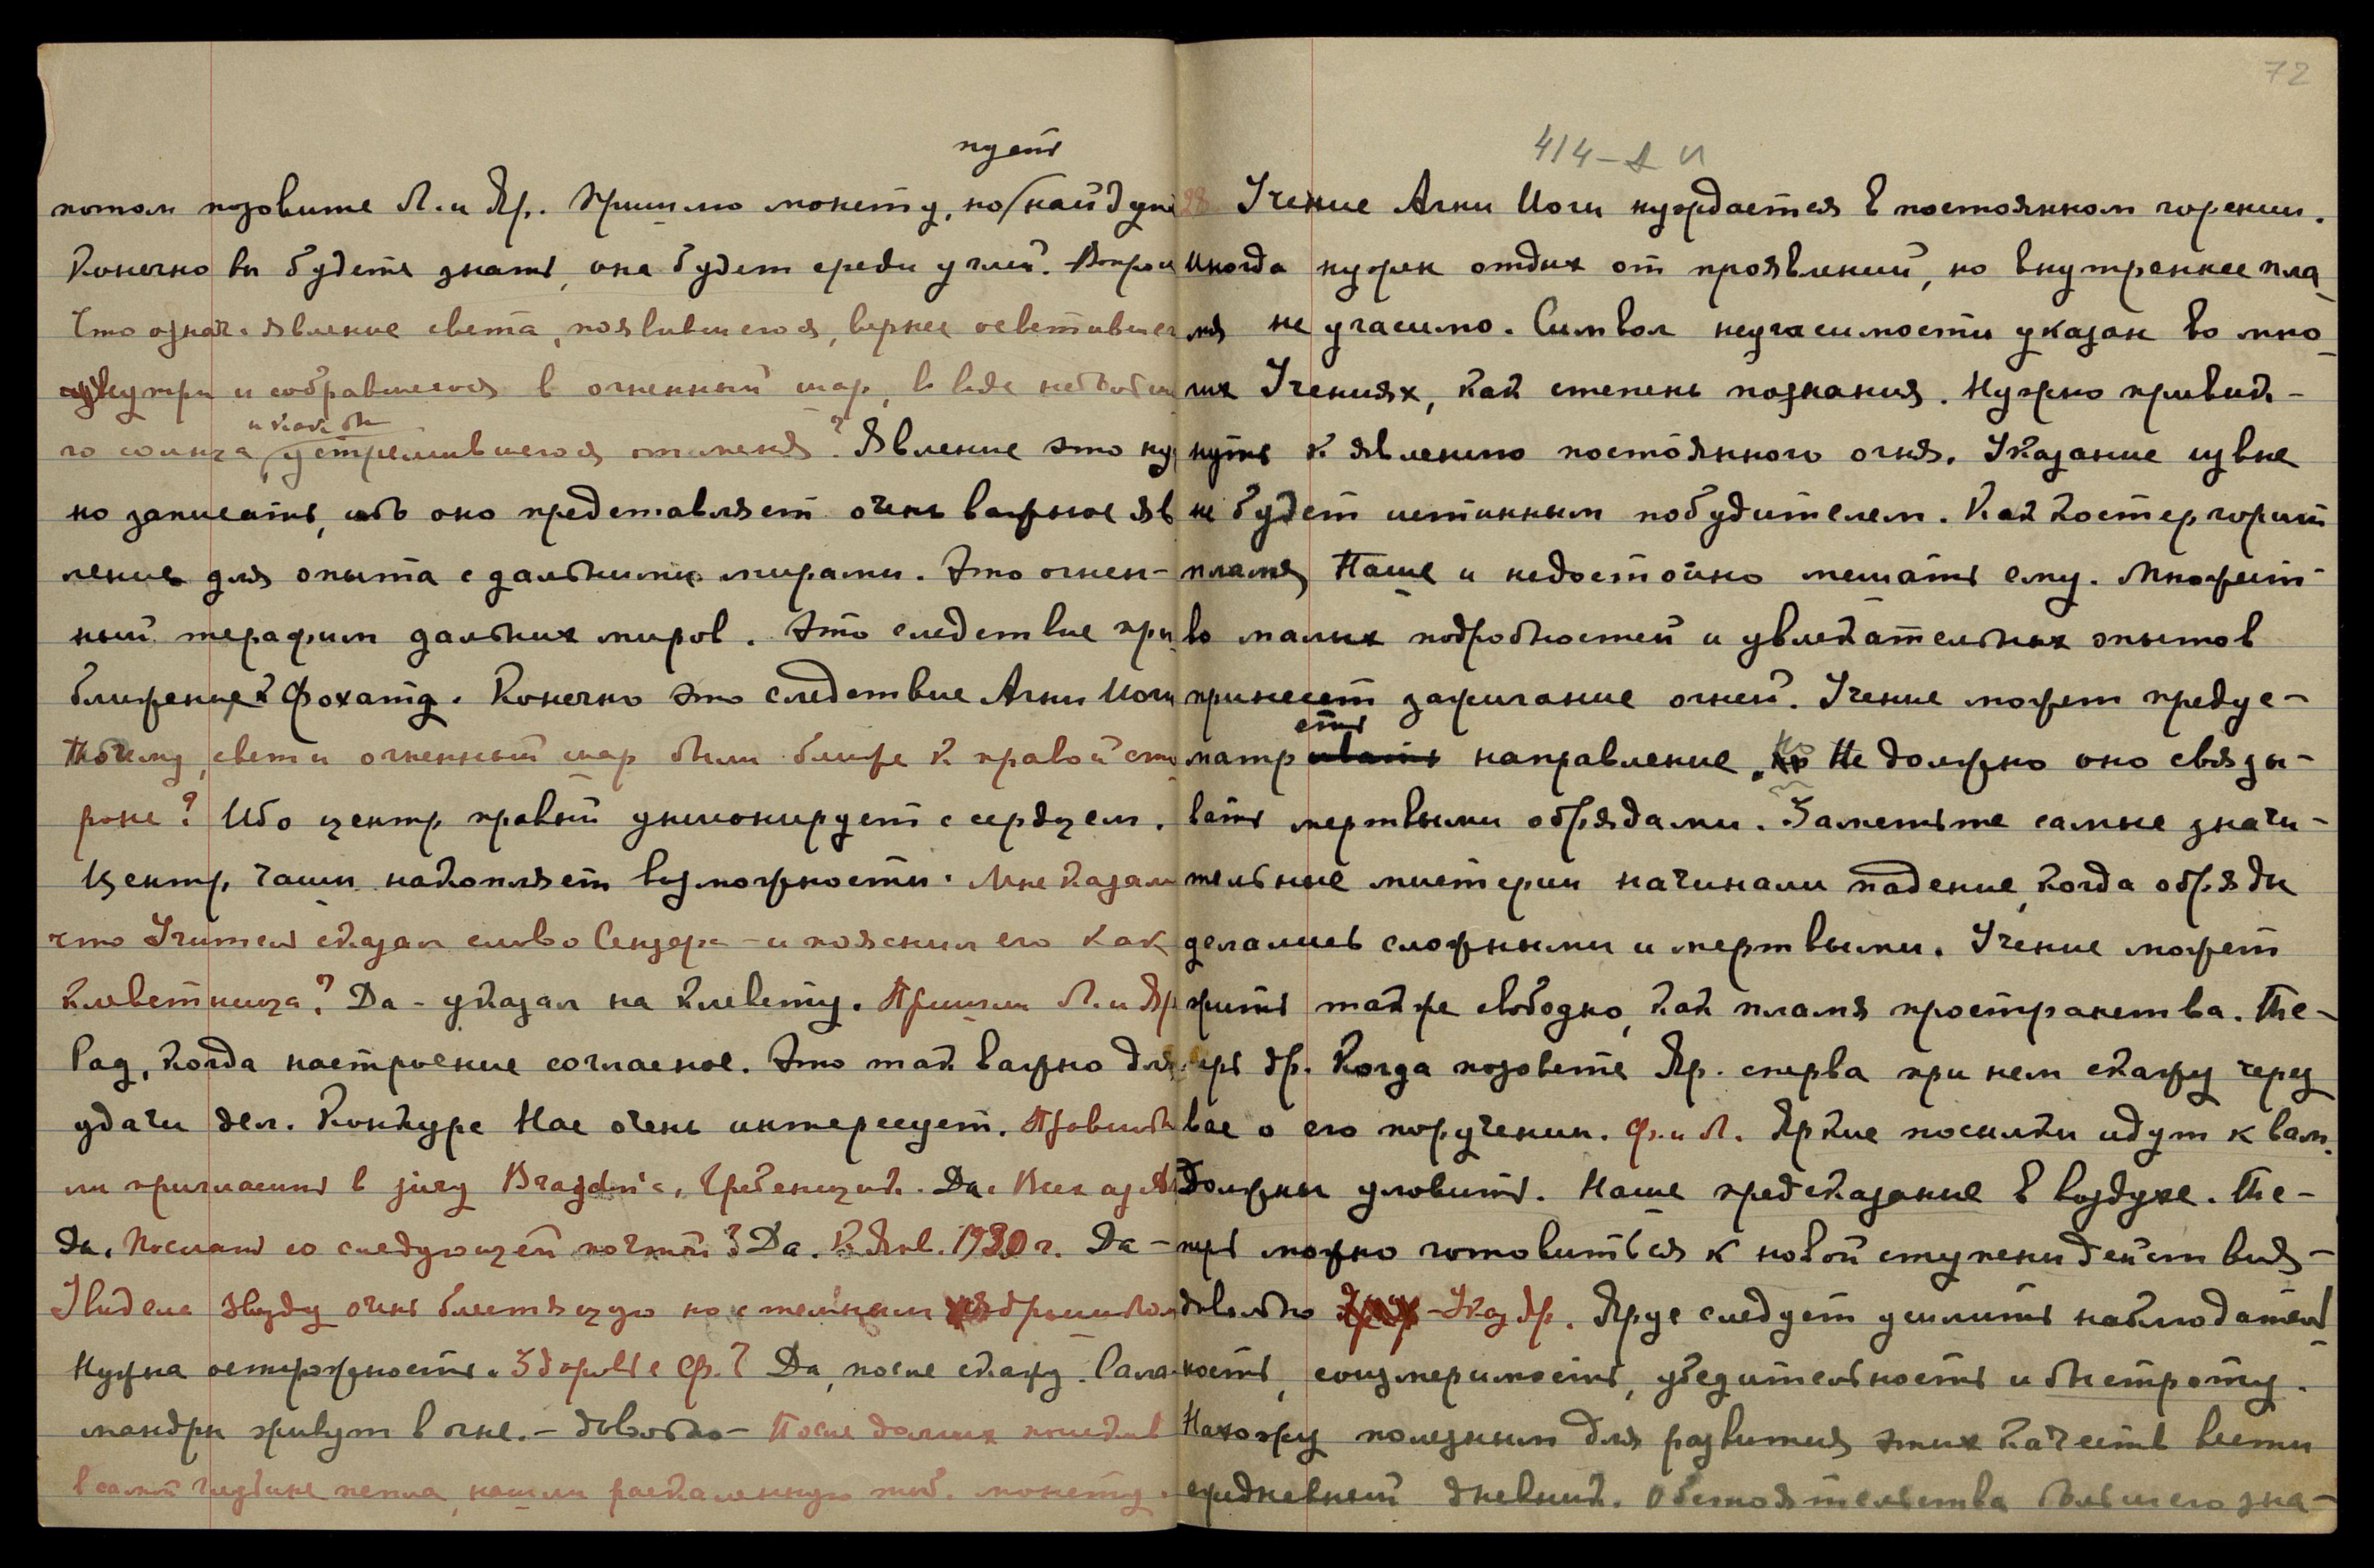 пусть
потом позовите Л. и Яр. Пришлю монету, но найдут
Конечно вы будете знать, она будет среди углей.
Что означ. явление света, появившегося, вернее осветившег
изнутри и собравшегося в огненный шар, в виде небольш
и как бы
го солнца, устремившегося от меня? Явление это нуж
но записать, ибо оно представляет очень важное яв
ление для опыта с дальними мирами. Это огнен-
ный терафим дальних миров. Это следствие при
ближения к Фохату. Конечно это следствие Агни Йоги
Почему свет и огненный шар были ближе к правой сто
роне? Ибо центр правый унисонирует с сердцем.
Центр чаши накопляет возможности. Мне казал
что Учитель сказал слово Сендер - и пояснил его как
клеветница? Да - указал на клевету. Пришли Л. и Яр
Рад, когда настроение согласное. Это так важно для
удачи дел. Конкурс Нас очень интересует.
ли пригласить в jury Bragdon'a, Гребенщик. Да.
Да. Послать со следующей почтой? Да. К Янв. 1930 г. Да -
Увидела звезду очень блестящую но с темным
Нужна осторожность. Здоровье Ф.? Да, после скажу. Сала
мандры живут в огне. - довольно - После долгих поисков
в самой глубине пепла, нашли раскаленную тиб. монету.
72
414 - А И
28 Учение Агни Йоги нуждается в постоянном горении.
Иногда нужен отдых от проявлений, но внутреннее пла
мя не угасимо. Символ неугасимости указан во мно
гих Учениях, как степень познания. Нужно привык-
нуть к явлению постоянного огня. Указание извне
не будет истинным побудителем. Как костер горит
пламя Наше и недостойно мешать ему. Множест-
во малых подробностей и увлекательных опытов
принесет зажигание огней. Учение может предус-
еть
матривать направление, Но Не должно оно связы-
вать мертвыми обрядами. Заметьте самые значи-
тельные мистерии начинали падение, когда обряды
делались сложными и мертвыми. Учение может
жить также свободно, как пламя пространства. Те-
перь др. Когда позовете Яр. сперва при нем скажу через
вас о его поручении. Ф. и Л. Яркие посылки идут к вам.
Должны уловить. Наше предсказание в воздухе. Те-
перь можно готовиться к новой ступени действия -
довольно - Указ др. Яруе следует усилить наблюдатель
ность, соизмеримость, убедительность и быстроту.
Нахожу полезным для развития этих качеств вести
ежедневный дневник. Обстоятельства большего зна-